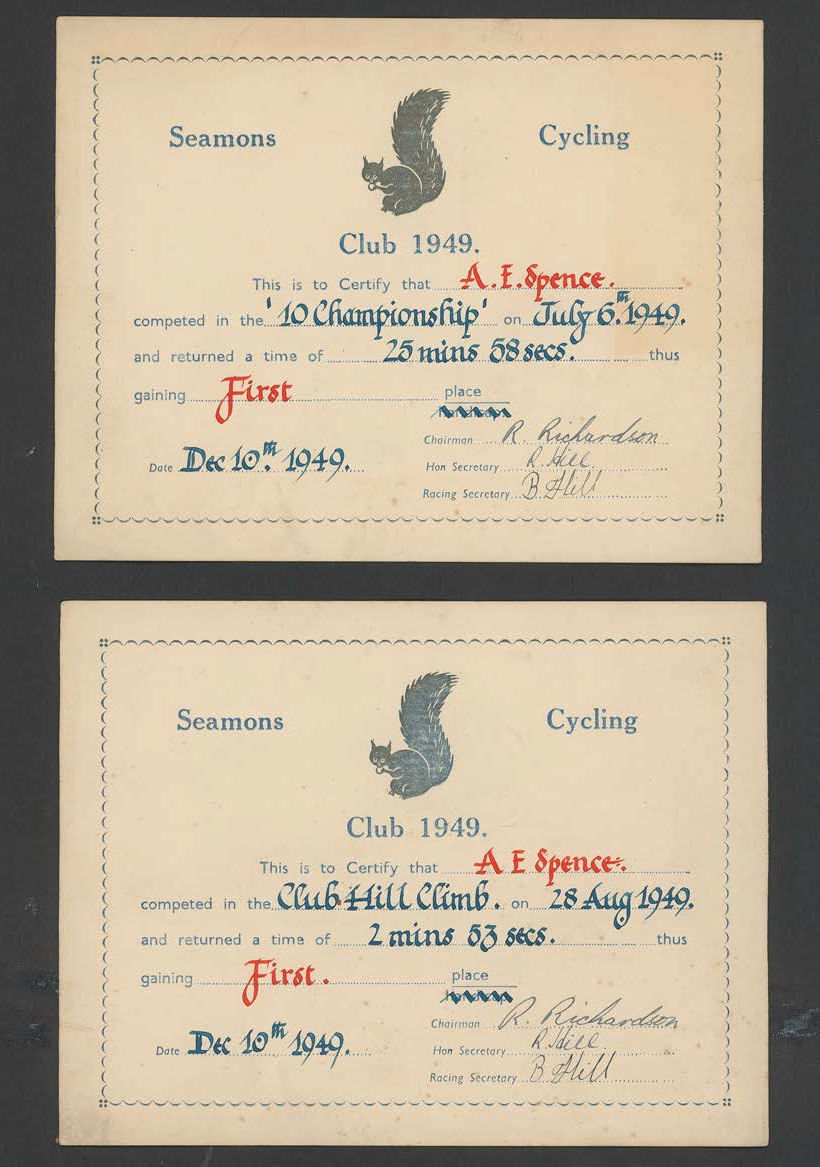 Seamons Cycling
Club 1949.
This is to Certify that A. E. Spence.
competed in the '10 Championship' on July 6.th 1949.
and returned a time of 25 mins 58 secs. thus
gaining First place
Chairman R. Richardson
Date Dec 10.th 1949. Hon Secretary R. Hill
Racing Secretary B. Hill
Seamons Cycling
Club 1949.
This is to Certify that A E Spence.
competed in the Club Hill Climb. on 28 Aug 1949.
and returned a time of 2 mins 53 secs. thus
gaining First. place
Chairman R. Richardson
Date Dec 10th 1949. Hon Secretary R Hill
Racing Secretary B Hill